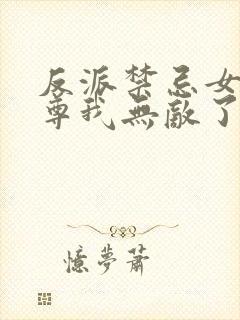 反派禁忌女
尊我無敵了
憶夢蕭